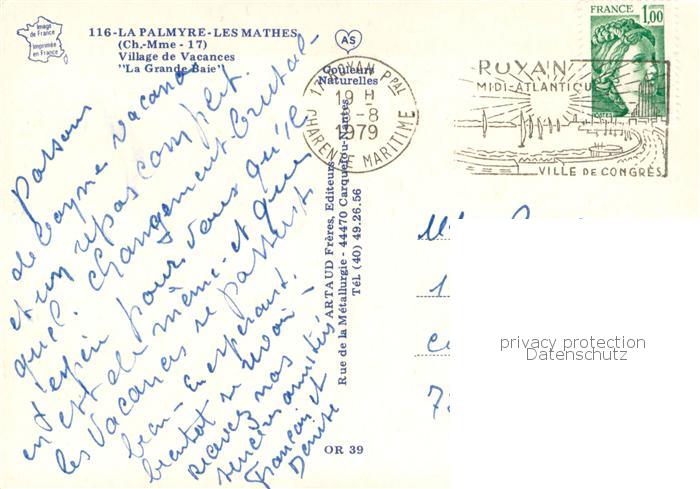 Image
de France
Imprimée
en France
116-LA PALMYRE-LES MATHES
(Ch.-Mme - 17)
Village de Vacances
"La Grande Baie"
AS
Couleurs
Naturelles
17 ROYAN Ppal
19 H
-8
1979
CHARENTE MARITIME
ROYAN
MIDI-ATLANTIQUE
VILLE DE CONGRÈS
FRANCE
1,00
POSTES
ARTAUD Frères, Editeurs
Rue de la Métallurgie - 44470 Carquefou-Nantes
Tél (40) 49.26.56
OR 39
Passons
de bonnes vacances
et un repos complet.
quel changement brutal-
J'espère pour vous qu'il
en est de même - et que
les vacances se passent
bien - En espérant
bientôt se revoir -
recevez nos
sincères amitiés
François et
Denise
privacy protection
Datenschutz